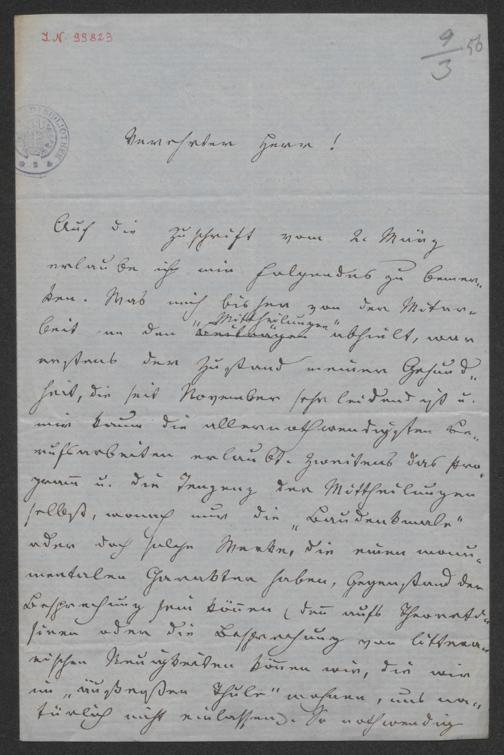 I.N. 99823
9/3 56
Verehrter Herr!
Auf die Zuschrift vom 2. März
erlaube ich mir Folgendes zu bemer-
ken. Was mich bisher von der Mitar-
beit an den Beiträgen „Mittheilungen“ abhielt, war
erstens der Zustand meiner Gesund-
heit, die seit November sehr leidend ist u.
mir kaum die allernothwendigsten Be-
rufsarbeiten erlaubt. Zweitens das Pro-
gramm u. die Tengenz der Mittheilungen
selbst, wonach nur die „Baudenkmale“
oder doch solche Werke, die einen monu-
mentalen Charakter haben, Gegenstand der
Besprechung sein können (denn aufs Theoreti-
siren oder die Besprechung von littera-
rischen Neuigkeiten können wir, die wir
im „äußersten Thule“ wohnen, uns na-
türlich nicht einlassen). So nothwendig